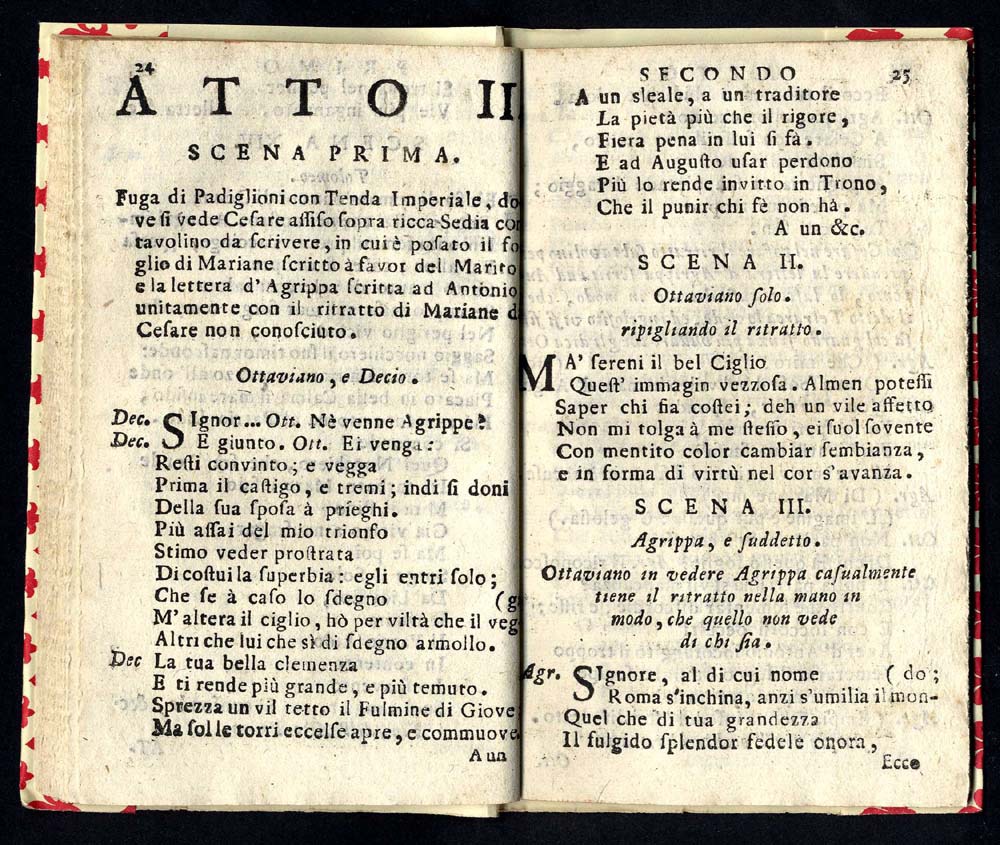 24
ATTO II
SCENA PRIMA.
Fuga di Padiglioni con Tenda Imperiale, do
ve si vede Cesare assiso sopra ricca Sedia con
tavolino da scrivere, in cui è posato il fo
glio di Mariane scritto à favor del Marito
e la lettera d'Agrippa scritta ad Antonio
unitamente con il ritratto di Mariane d
Cesare non conosciuto.
Ottaviano, e Decio.
Dec. SIgnor... Ott. Nè venne Agrippe?
Dec. E giunto. Ott. Ei venga:
Resti convinto; e vegga
Prima il castigo, e tremi; indi si doni
Della sua sposa à prieghi.
Più assai del mio trionfo
Stimo veder prostrata
Di costui la superbia: egli entri solo;
Che se à caso lo sdegno (g
M'altera il ciglio, hò per viltà che il veg
Altri che lui che sì di sdegno armollo.
Dec La tua bella clemenza
E ti rende più grande, e più temuto.
Sprezza un vil tetto il Fulmine di Giove
Ma sol le torri eccelse apre, e commuove.
A un
SECONDO 25
A un sleale, a un traditore
La pietà più che il rigore,
Fiera pena in lui si fà.
E ad Augusto usar perdono
Più lo rende invitto in Trono,
Che il punir chi fè non hà.
A un &c.
SCENA II.
Ottaviano solo.
ripigliando il ritratto.
MA' sereni il bel Ciglio
Quest' immagin vezzosa. Almen potessi
Saper chi sia costei; deh un vile affetto
Non mi tolga à me stesso, ei suol sovente
Con mentito color cambiar sembianza,
e in forma di virtù nel cor s'avanza.
SCENA III.
Agrippa, e suddetto.
Ottaviano in vedere Agrippa casualmente
tiene il ritratto nella mano in
modo, che quello non vede
di chi sia.
Agr. SIgnore, al di cui nome (do;
Roma s'inchina, anzi s'umilia il mon-
Quel che di tua grandezza
Il fulgido splendor fedele onora,
Ecco